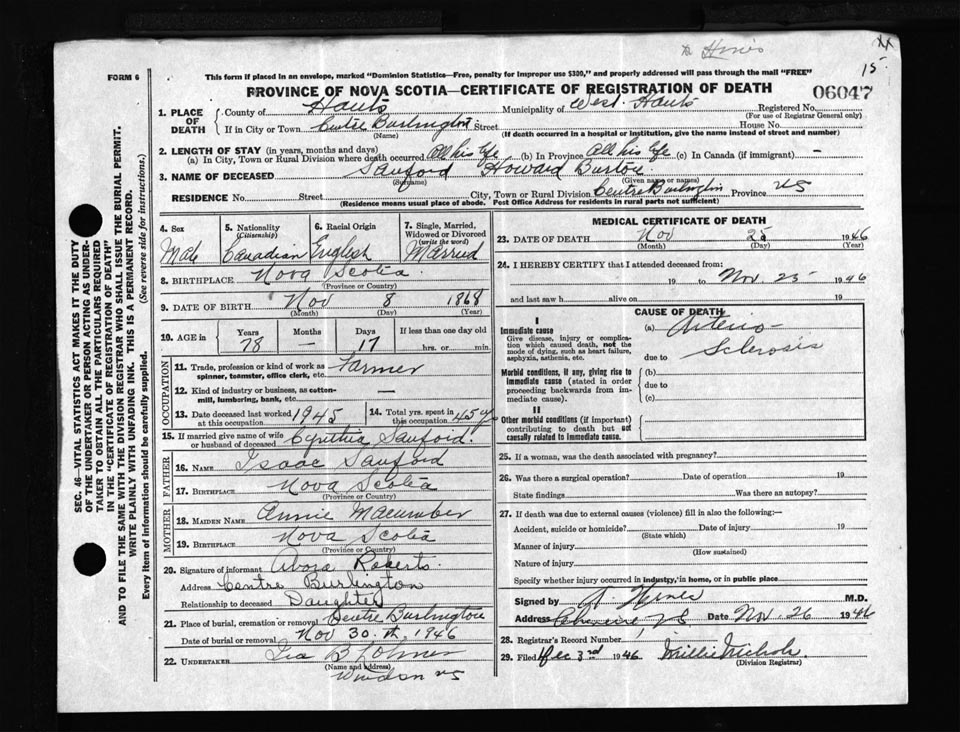 Hines
XX
15
FORM 6
This form if placed in an envelope, marked "Dominion Statistics—Free, penalty for improper use $300," and properly addressed will pass through the mail "FREE"
PROVINCE OF NOVA SCOTIA—CERTIFICATE OF REGISTRATION OF DEATH
06047
1. PLACE OF DEATH
County of Hants Municipality of West Hants Registered No.
(For use of Registrar General only)
If in City or Town Centre Burlington Street House No.
(Name) (If death occurred in a hospital or institution, give the name instead of street and number)
2. LENGTH OF STAY (in years, months and days)
(a) In City, Town or Rural Division where death occurred All his life (b) In Province All his life (c) In Canada (if immigrant) —
3. NAME OF DECEASED Sanford Howard Burton
(Surname) (Given name or names)
RESIDENCE No. Street City, Town or Rural Division Centre Burlington Province NS
(Residence means usual place of abode. Post Office Address for residents in rural parts not sufficient)
SEC. 46—VITAL STATISTICS ACT MAKES IT THE DUTY
OF THE UNDERTAKER OR PERSON ACTING AS UNDER-
TAKER TO OBTAIN ALL THE PARTICULARS REQUIRED
IN THE "CERTIFICATE OF REGISTRATION OF DEATH"
AND TO FILE THE SAME WITH THE DIVISION REGISTRAR WHO SHALL ISSUE THE BURIAL PERMIT.
WRITE PLAINLY WITH UNFADING INK. THIS IS A PERMANENT RECORD.
Every item of information should be carefully supplied. (See reverse side for instructions.)
4. Sex
Male
5. Nationality
(Citizenship)
Canadian
6. Racial Origin
English
7. Single, Married, Widowed or Divorced
(write the word)
Married
8. BIRTHPLACE Nova Scotia
(Province or Country)
9. DATE OF BIRTH Nov 8 1868
(Month) (Day) (Year)
10. AGE in
Years Months Days If less than one day old
78 — 17 hrs. or min.
OCCUPATION
11. Trade, profession or kind of work as spinner, teamster, office clerk, etc. Farmer
12. Kind of industry or business, as cotton-mill, lumbering, bank, etc. —
13. Date deceased last worked at this occupation 1945
14. Total yrs. spent in this occupation 45 y
15. If married give name of wife or husband of deceased Cynthia Sanford.
FATHER
16. NAME Isaac Sanford
17. BIRTHPLACE Nova Scotia
(Province or Country)
MOTHER
18. MAIDEN NAME Annie Macumber
19. BIRTHPLACE Nova Scotia
(Province or Country)
20. Signature of informant Avora Roberts
Address Centre Burlington
Relationship to deceased Daughter
21. Place of burial, cremation or removal Centre Burlington
Date of burial or removal Nov 30 th, 1946
22. UNDERTAKER Ira B
(Name and address)
Windsor NS
MEDICAL CERTIFICATE OF DEATH
23. DATE OF DEATH Nov 25 1946
(Month) (Day) (Year)
24. I HEREBY CERTIFY that I attended deceased from:
19 to Nov. 25 1946
and last saw h alive on 19
CAUSE OF DEATH
I
Immediate cause
Give disease, injury or complication which caused death, not the mode of dying, such as heart failure, asphyxia, asthenia, etc.
(a) Arterio-
due to Sclerosis
Morbid conditions, if any, giving rise to immediate cause (stated in order proceeding backwards from immediate cause).
(b)
due to
(c)
II
Other morbid conditions (if important) contributing to death but not causally related to immediate cause.
25. If a woman, was the death associated with pregnancy?
26. Was there a surgical operation? Date of operation 19
State findings Was there an autopsy?
27. If death was due to external causes (violence) fill in also the following:—
Accident, suicide or homicide? Date of injury 19
(State which)
Manner of injury
(How sustained)
Nature of injury
Specify whether injury occurred in industry, in home, or in public place
Signed by A. Hines M.D.
Address NS Date Nov. 26 1946
28. Registrar's Record Number 1
29. Filed Dec 3rd 1946 Millie Nichols
(Division Registrar)